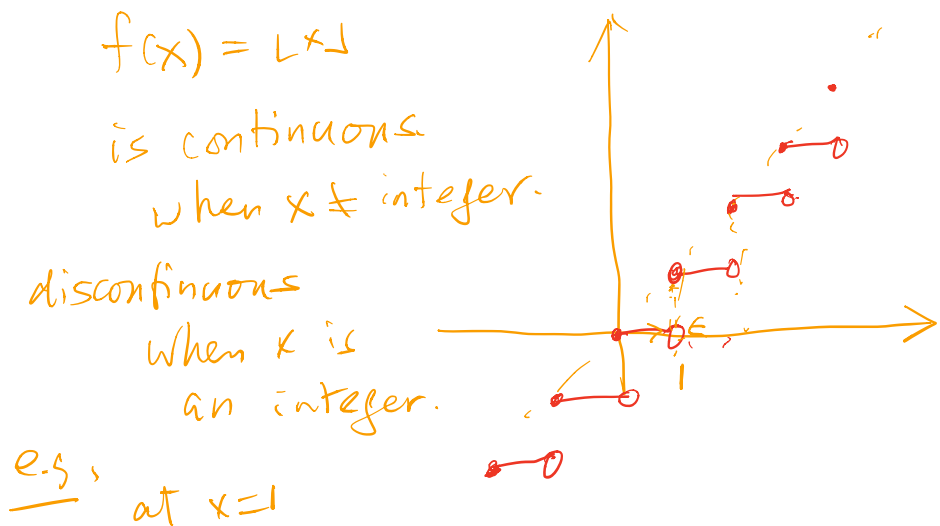 f(x) = ⌊x⌋
is continuous
when x ≠ integer.
discontinuous
when x is
an integer.
e.g,
at x=1
1